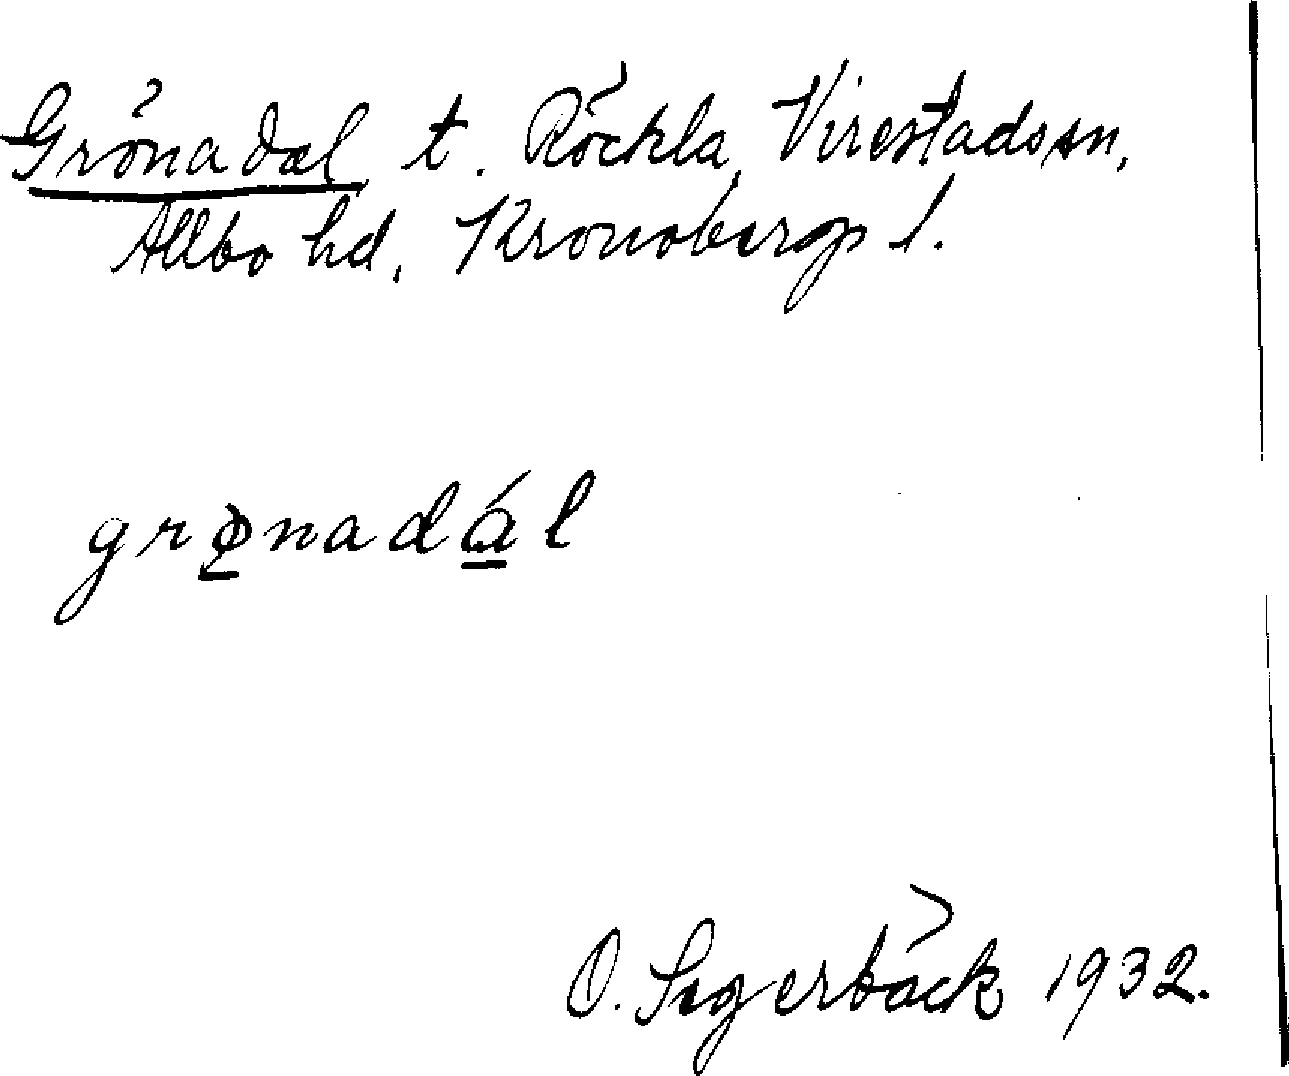 Grönadal t. Röckla, Virestads sn,
Allbo hd, Kronobergs l.
grø̱nadá̱l
O. Segerbäck 1932.